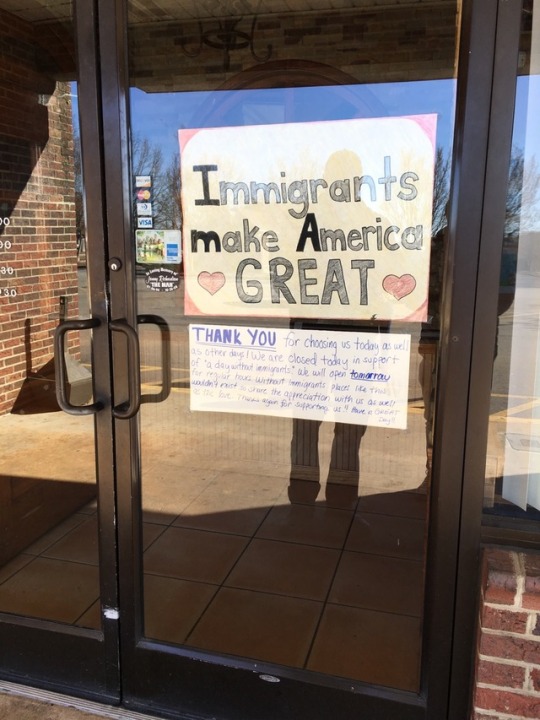 Immigrants
make America
GREAT
THANK YOU for choosing us today as well
as other days! We are closed today in support
of "a day without immigrants" we will open tomorrow
for regular hours. Without immigrants places like this
wouldn't exist. Share the appreciation with us as well
as the love. Thanks again for supporting us!! Have a GREAT
Day!!
VISA
In Loving Memory of
THE MAN
00
00
30
30